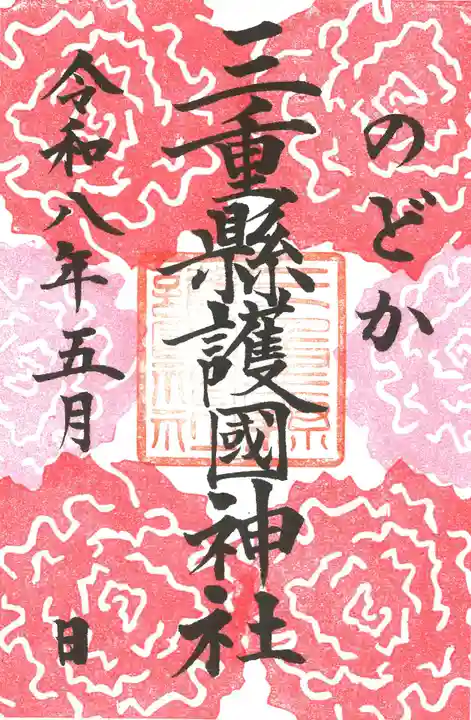 のどか
三重縣護國神社
令和八年五月 日